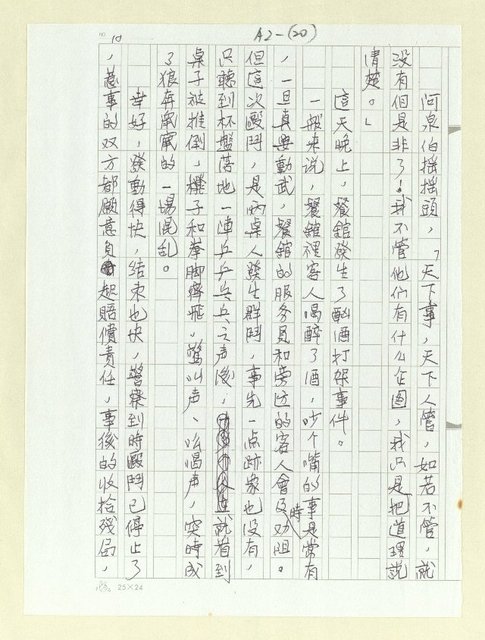 A2-(20)
10
阿泉伯搖搖頭，「天下事，天下人管，如若不管，就
沒有個是非了！我不管他們有什么企圖，我只是把道理説
清楚。」
這天晚上，餐館發生了酗酒打架事件。
一般來説，餐館裡客人喝醉了酒，吵个嘴的事是常有
，一旦真要動武，餐館的服务員和旁边的客人會及時劝阻。
但這次毆鬥，是两桌人發生群鬥，事先一点跡象也没有，
只聽到杯盤落地一連乒乒乓乓之声後，就看到
桌子被推倒，櫈子和拳脚齊飛，驚叫声、吆喝声，突時成
了狼奔豕竄的一場混乱。
幸好，發動得快，結束也快，警察到時毆鬥已停止了
，惹事的双方都願意負起賠償責任，事後的收拾殘局，
25×24